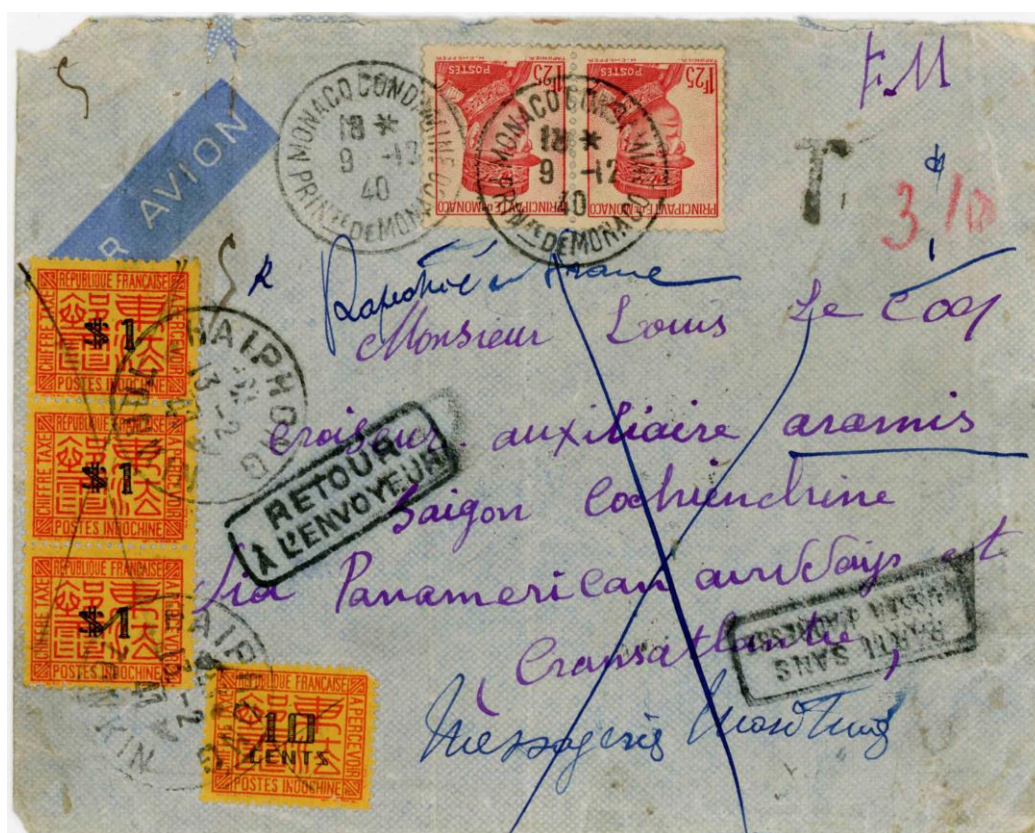 F.M
PAR AVION
MONACO CONDAMINE
18 *
9 -12
40
PRINTE DE MONACO
MONACO CONDAMINE
18 *
9 -12
40
PRINTE DE MONACO
POSTES
1F25
PRINCIPAUTÉ DE MONACO
POSTES
1F25
PRINCIPAUTÉ DE MONACO
T
3/10
R
en France
Monsieur Louis Le Coq
Croiseur auxiliaire aramis
Saigon Cochinchine
Via Panamerican
et
Transatlantic
Messageries Maritimes
RETOUR
À L'ENVOYEUR
PARTI SANS
LAISSER D'ADRESSE
RÉPUBLIQUE FRANÇAISE
CHIFFRE TAXE
À PERCEVOIR
$1
POSTES INDOCHINE
RÉPUBLIQUE FRANÇAISE
CHIFFRE TAXE
À PERCEVOIR
$1
POSTES INDOCHINE
RÉPUBLIQUE FRANÇAISE
CHIFFRE TAXE
À PERCEVOIR
$1
POSTES INDOCHINE
RÉPUBLIQUE FRANÇAISE
À PERCEVOIR
10
CENTS
POSTES INDOCHINE
HAIPHONG
TONKIN
HAIPHONG
TONKIN